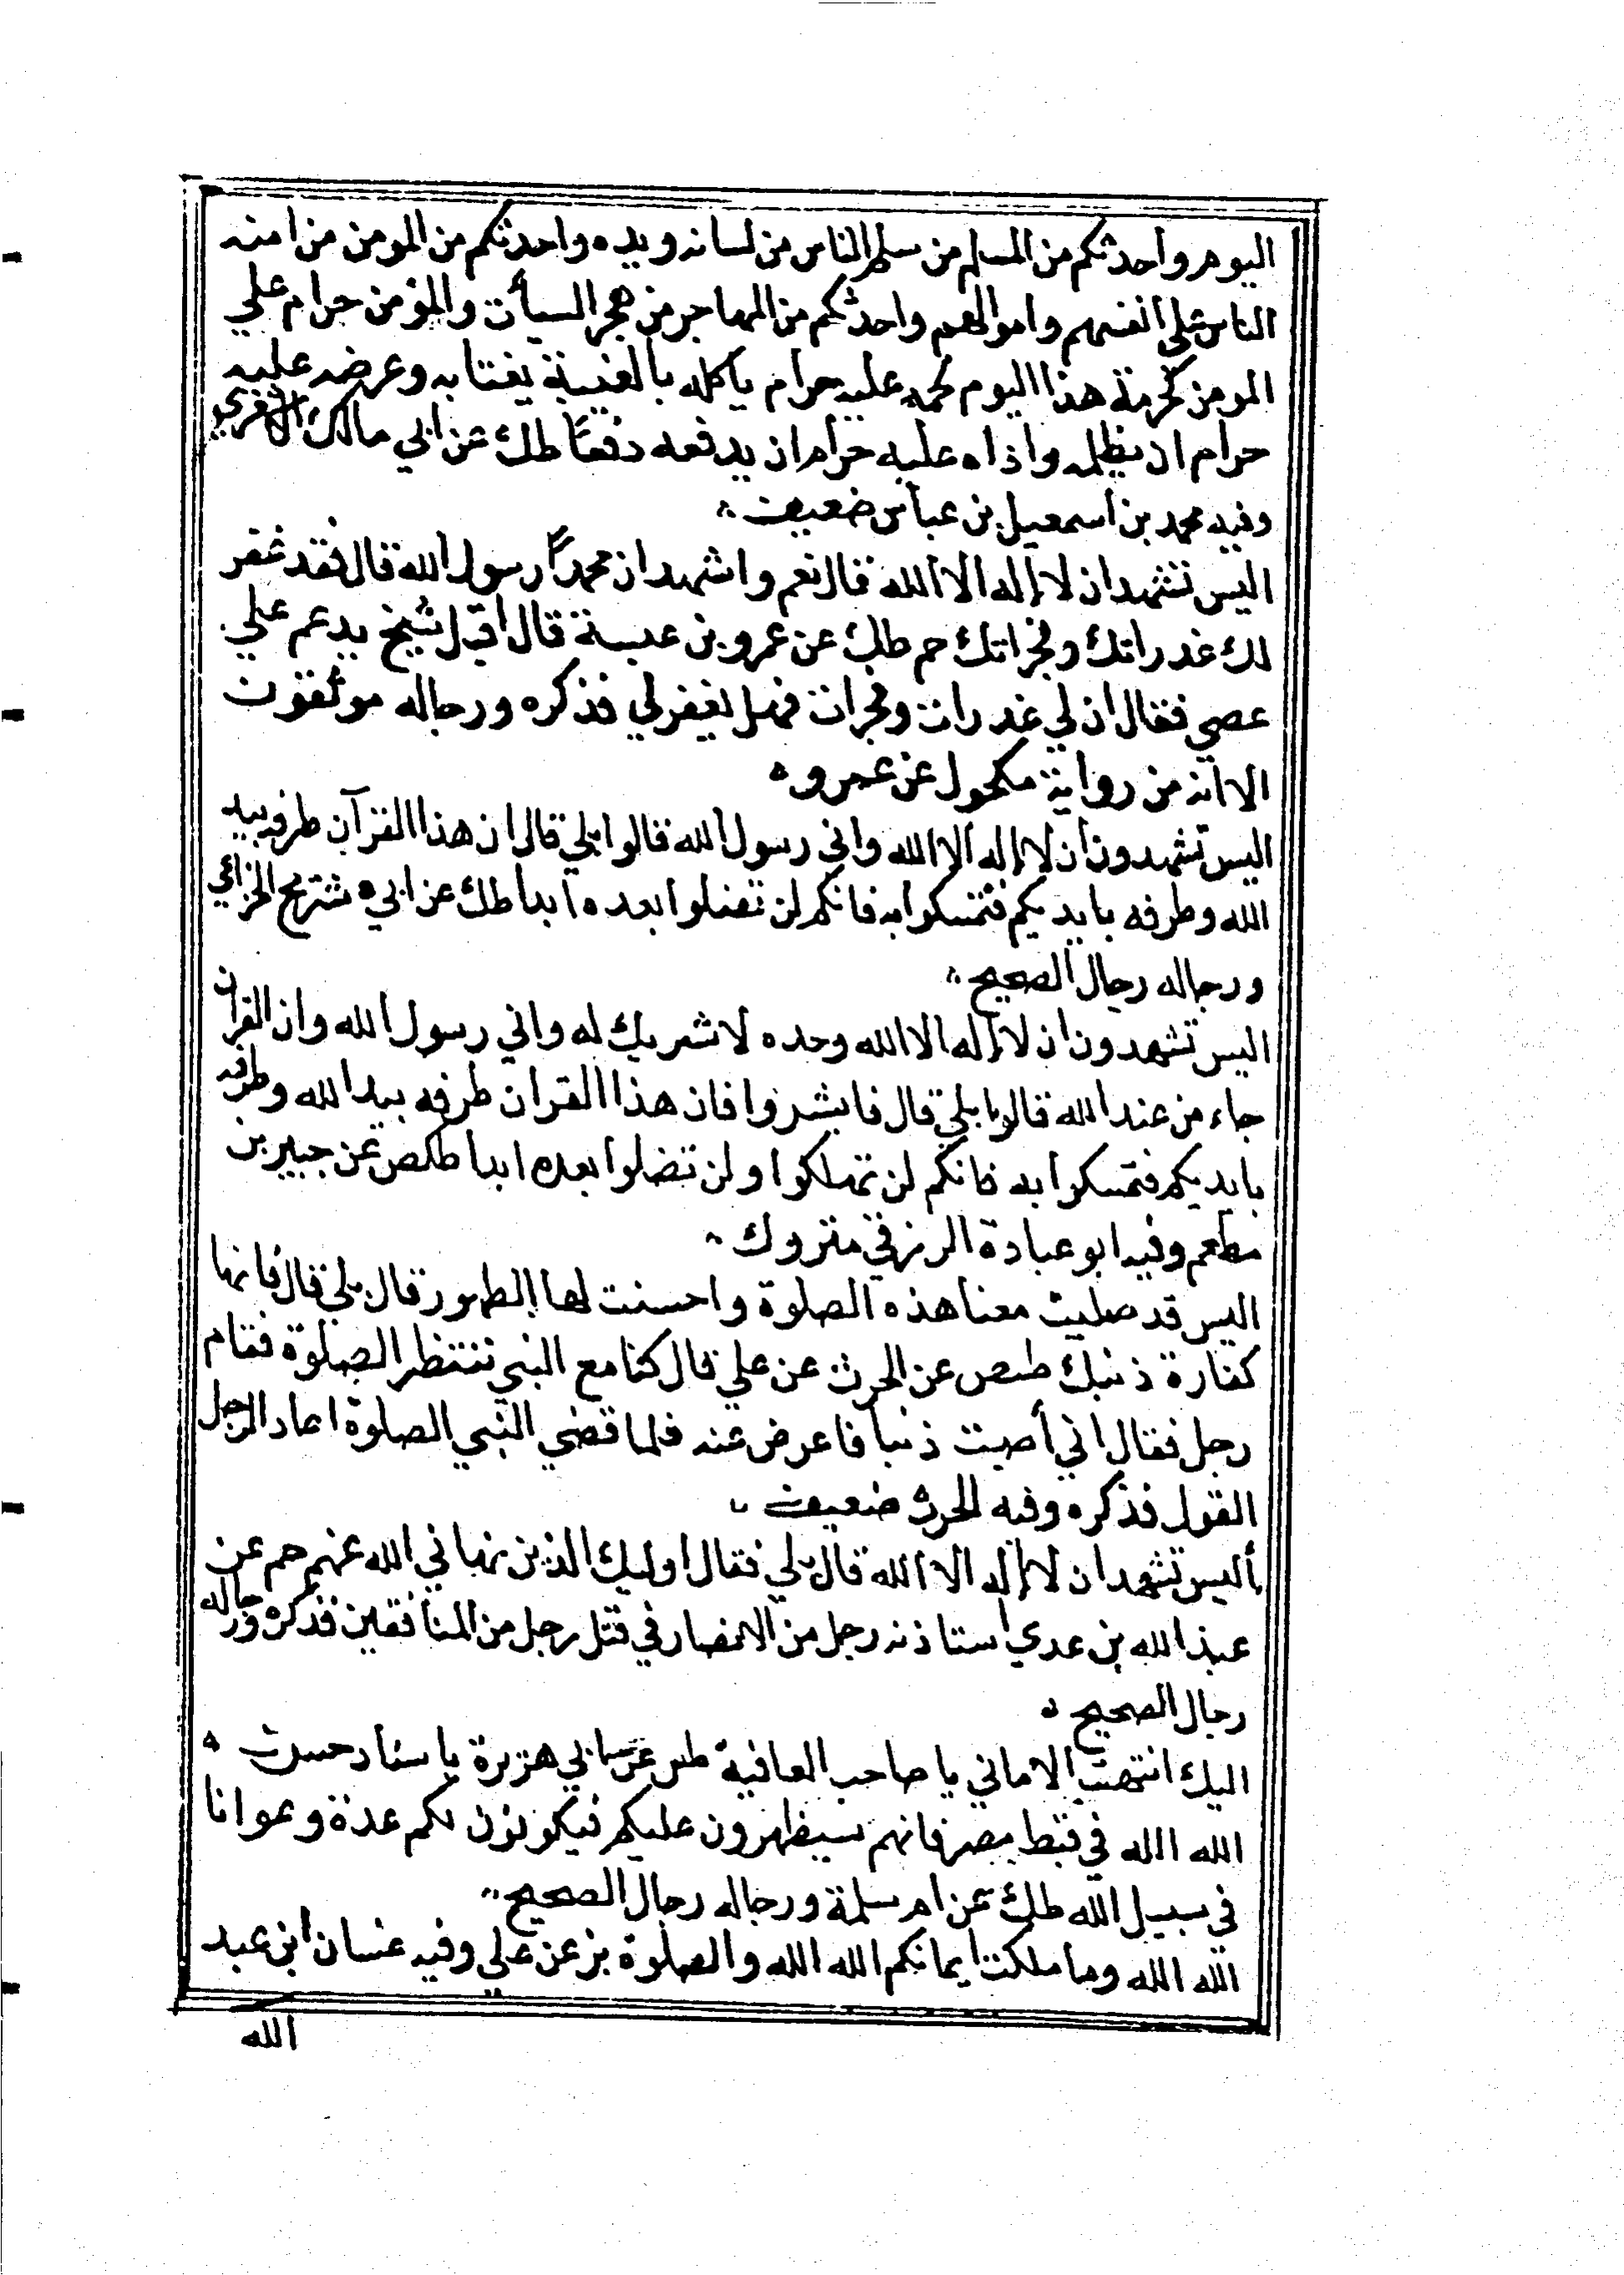 اليوم واحدثكم من المسلم من سلم الناس من لسانه ويده واحدثكم من المومن من امنه
الناس على انفسهم واموالهم واحدثكم من المهاجر من هجر السيأت والمؤمن حرام علي
المومن كحرمة هذا اليوم لحمه عليه حرام ياكله بالغيبة يغتابه وعرضه عليه
حرام ان يظلمه واذاه عليه حرام ان يدفعه دفعًا طك عن ابي مالك الاشعري
وفيه محمد بن اسمعيل بن عباس ضعيف
اليس تشهد ان لا إله الا الله قال نعم واشهد ان محمداً رسول الله قال فقد غفر
لك غدراتك وفجراتك حم طك عن عمرو بن عبسة قال اقبل شيخ يدعم علي
عصي فقال ان لي غدرات وفجرات فهل يغفر لي فذكره ورجاله موثقون
الا انه من رواية مكحول عن عمرو
اليس تشهدون ان لا إله الا الله واني رسول الله قالوا بلي قال ان هذا القرآن طرفه بيد
الله وطرفه بايديكم فتمسكوا به فانكم لن تضلوا بعده ابدا طك عن ابي شريح الخزاعي
ورجاله رجال الصحيح
اليس تشهدون ان لا إله الا الله وحده لا شريك له واني رسول الله وان القران
جاء من عند الله قالوا بلي قال فابشروا فان هذا القران طرفه بيد الله وطرفه
بايديكم فتمسكوا به فانكم لن تهلكوا ولن تضلوا بعده ابدا طكص عن جبير بن
مطعم وفيه ابو عبادة الرزقي متروك
اليس قد صليت معنا هذه الصلوة واحسنت لها الطهور قال بلي قال فانها
كفارة ذنبك طص عن الحرث عن علي قال كنا مع النبي ننتظر الصلوة فقام
رجل فقال اني أصبت ذنبا فاعرض عنه فلما قضي النبي الصلوة اعاد الرجل
القول فذكره وفيه الحرث ضعيف
أليس تشهد ان لا إله الا الله قال بلي فقال اوليك الذين نهاني الله عنهم حم عن
عبد الله بن عدي استاذنه رجل من الانصار في قتل رجل من المنافقين فذكره ورجاله
رجال الصحيح
اليك انتهت الاماني يا صاحب العافية طس عن ابي هريرة باسناد حسن
الله الله في قبط مصر فانهم سيظهرون عليكم فيكونون لكم عدة وعوانا
في سبيل الله طك عن ام سلمة ورجاله رجال الصحيح
الله الله وما ملكت ايمانكم الله الله والصلوة بز عن علي وفيه غسان ابن عبد
الله